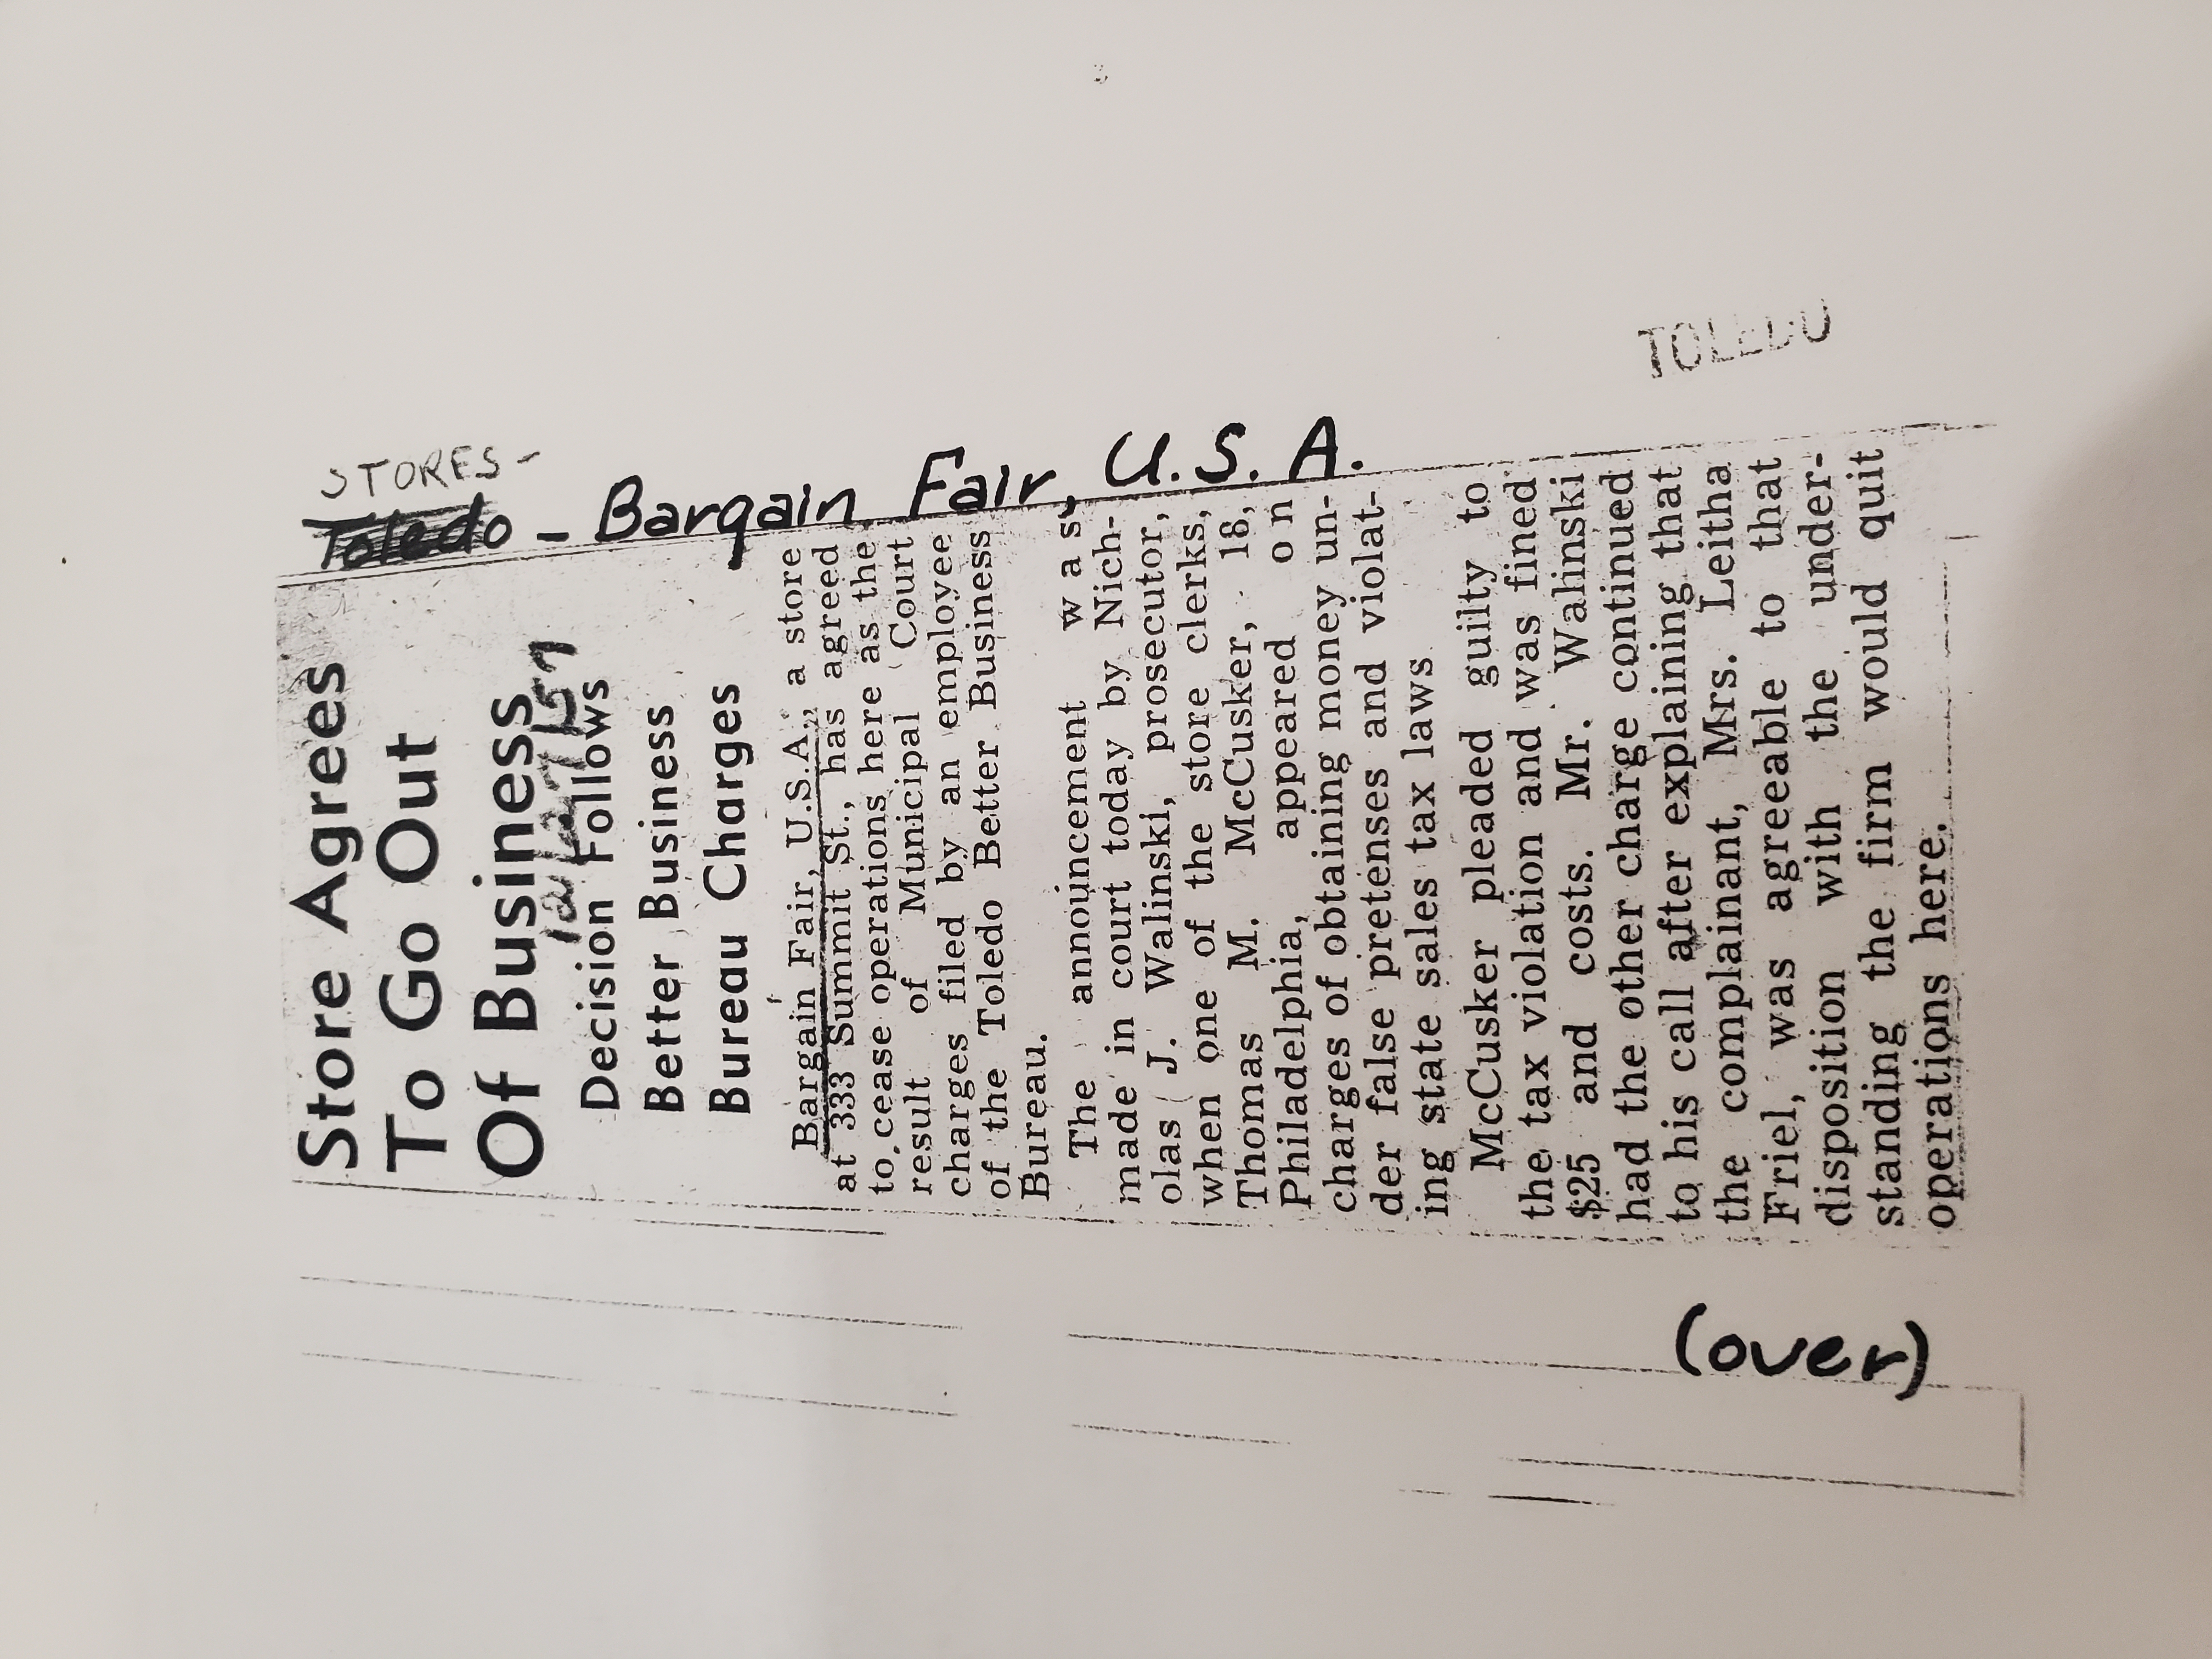 STORES-
Toledo - Bargain Fair, U.S.A.
TOLEDO
Store Agrees
To Go Out
Of Business
Decision Follows
Better Business
Bureau Charges
Bargain Fair, U.S.A., a store
at 333 Summit St., has agreed
to cease operations here as the
result of Municipal Court
charges filed by an employee
of the Toledo Better Business
Bureau.
The announcement was
made in court today by Nich-
olas J. Walinski, prosecutor,
when one of the store clerks,
Thomas M. McCusker, 18,
Philadelphia, appeared on
charges of obtaining money un-
der false pretenses and violat-
ing state sales tax laws
McCusker pleaded guilty to
the tax violation and was fined
$25 and costs. Mr. Walinski
had the other charge continued
to his call after explaining that
the complainant, Mrs. Leitha
Friel, was agreeable to that
disposition with the under-
standing the firm would quit
operations here.
(over)